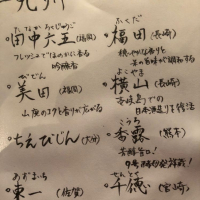 九州
たなか ろくじゅうご
田中六五 (福岡)
フレッシュでほのかに香る
吟醸香
びでん
美田 (福岡)
山廃のコクと香りが広がる
ちえびじん (大分)
あずまいち
東一 (佐賀)
ふくだ
福田 (長崎)
よこやま
横山 (長崎)
壱岐島での
日本酒造りを復活
こうろ
香露 (熊本)
9号酵母発祥蔵!
せんとく
千徳 (宮崎)